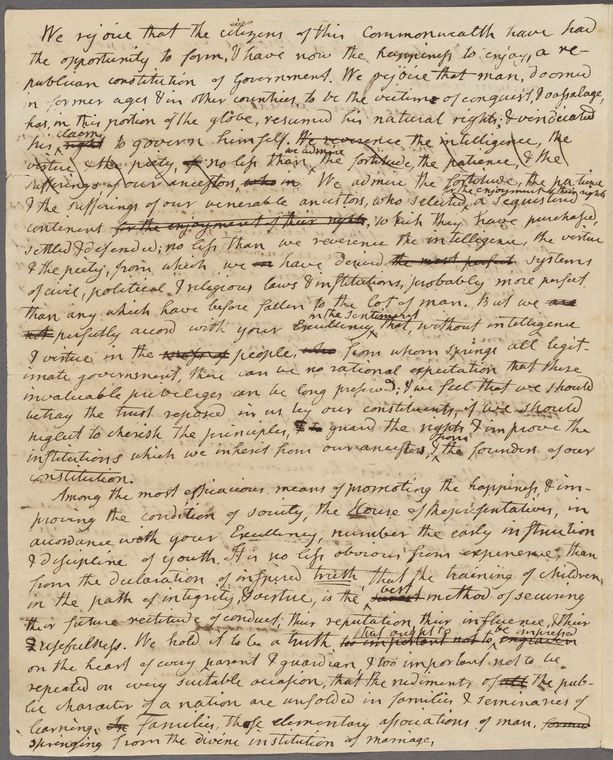 We rejoice that the citizens of this Commonwealth have had
the opportunity to form, & have now the happiness to enjoy, a re-
publican constitution of Government. We rejoice that man, doomed
in former ages & in other countries, to be the victim of conquest, & vassalage,
has, in this portion of the globe, resumed his natural rights; & vindicated
claim
his, right to govern himself. We reverence the intelligence, the
we admire
virtue & the piety, no less than the fortitude, the patience, & the
sufferings of our ancestors, who in We admire the fortitude, the patience
in the enjoyment of their rights
& the sufferings of our venerable ancestors, who selected, a sequestered
continent for the enjoyment of their rights, which they have purchased,
settled & defended; no less than we reverence the intelligence, the virtue
& the piety, from which we have derived the most perfect systems
of civil, political & religious laws & institutions, probably more perfect
than any which have before fallen to the lot of man. But we are
in the sentiment
not perfectly accord with your Excellency, that, without intelligence
& virtue in the people, who from whom springs all legit-
imate government, there can be no rational expectation that these
invaluable privileges can be long preserved; & we feel that we should
betray the trust reposed in us by our constituents, if we should
neglect to cherish the principles, & to guard the rights & improve the
from
institutions which we inherit from our ancestors, & the founders of our
constitution.
Among the most efficacious means of promoting the happiness, & im-
proving the condition of society, the House of Representatives, in
accordance with your Excellency, number the early instruction
& discipline of youth. It is no less obvious from experience, than
from the declaration of inspired truth that the training of children,
best
in the path of integrity, & virtue, is the surest method of securing
their future rectitude of conduct, their reputation, their influence, & their
that ought to be impressed
& usefulness. We hold it to be a truth too important not to engraven
on the heart of every parent & guardian, & too important not to be
repeated on every suitable occasion, that the rudiments of all the pub-
lic character of a nation are unfolded in families & seminaries of
learning. In Families, those elementary associations of man, formed
springing from the divine institution of marriage,